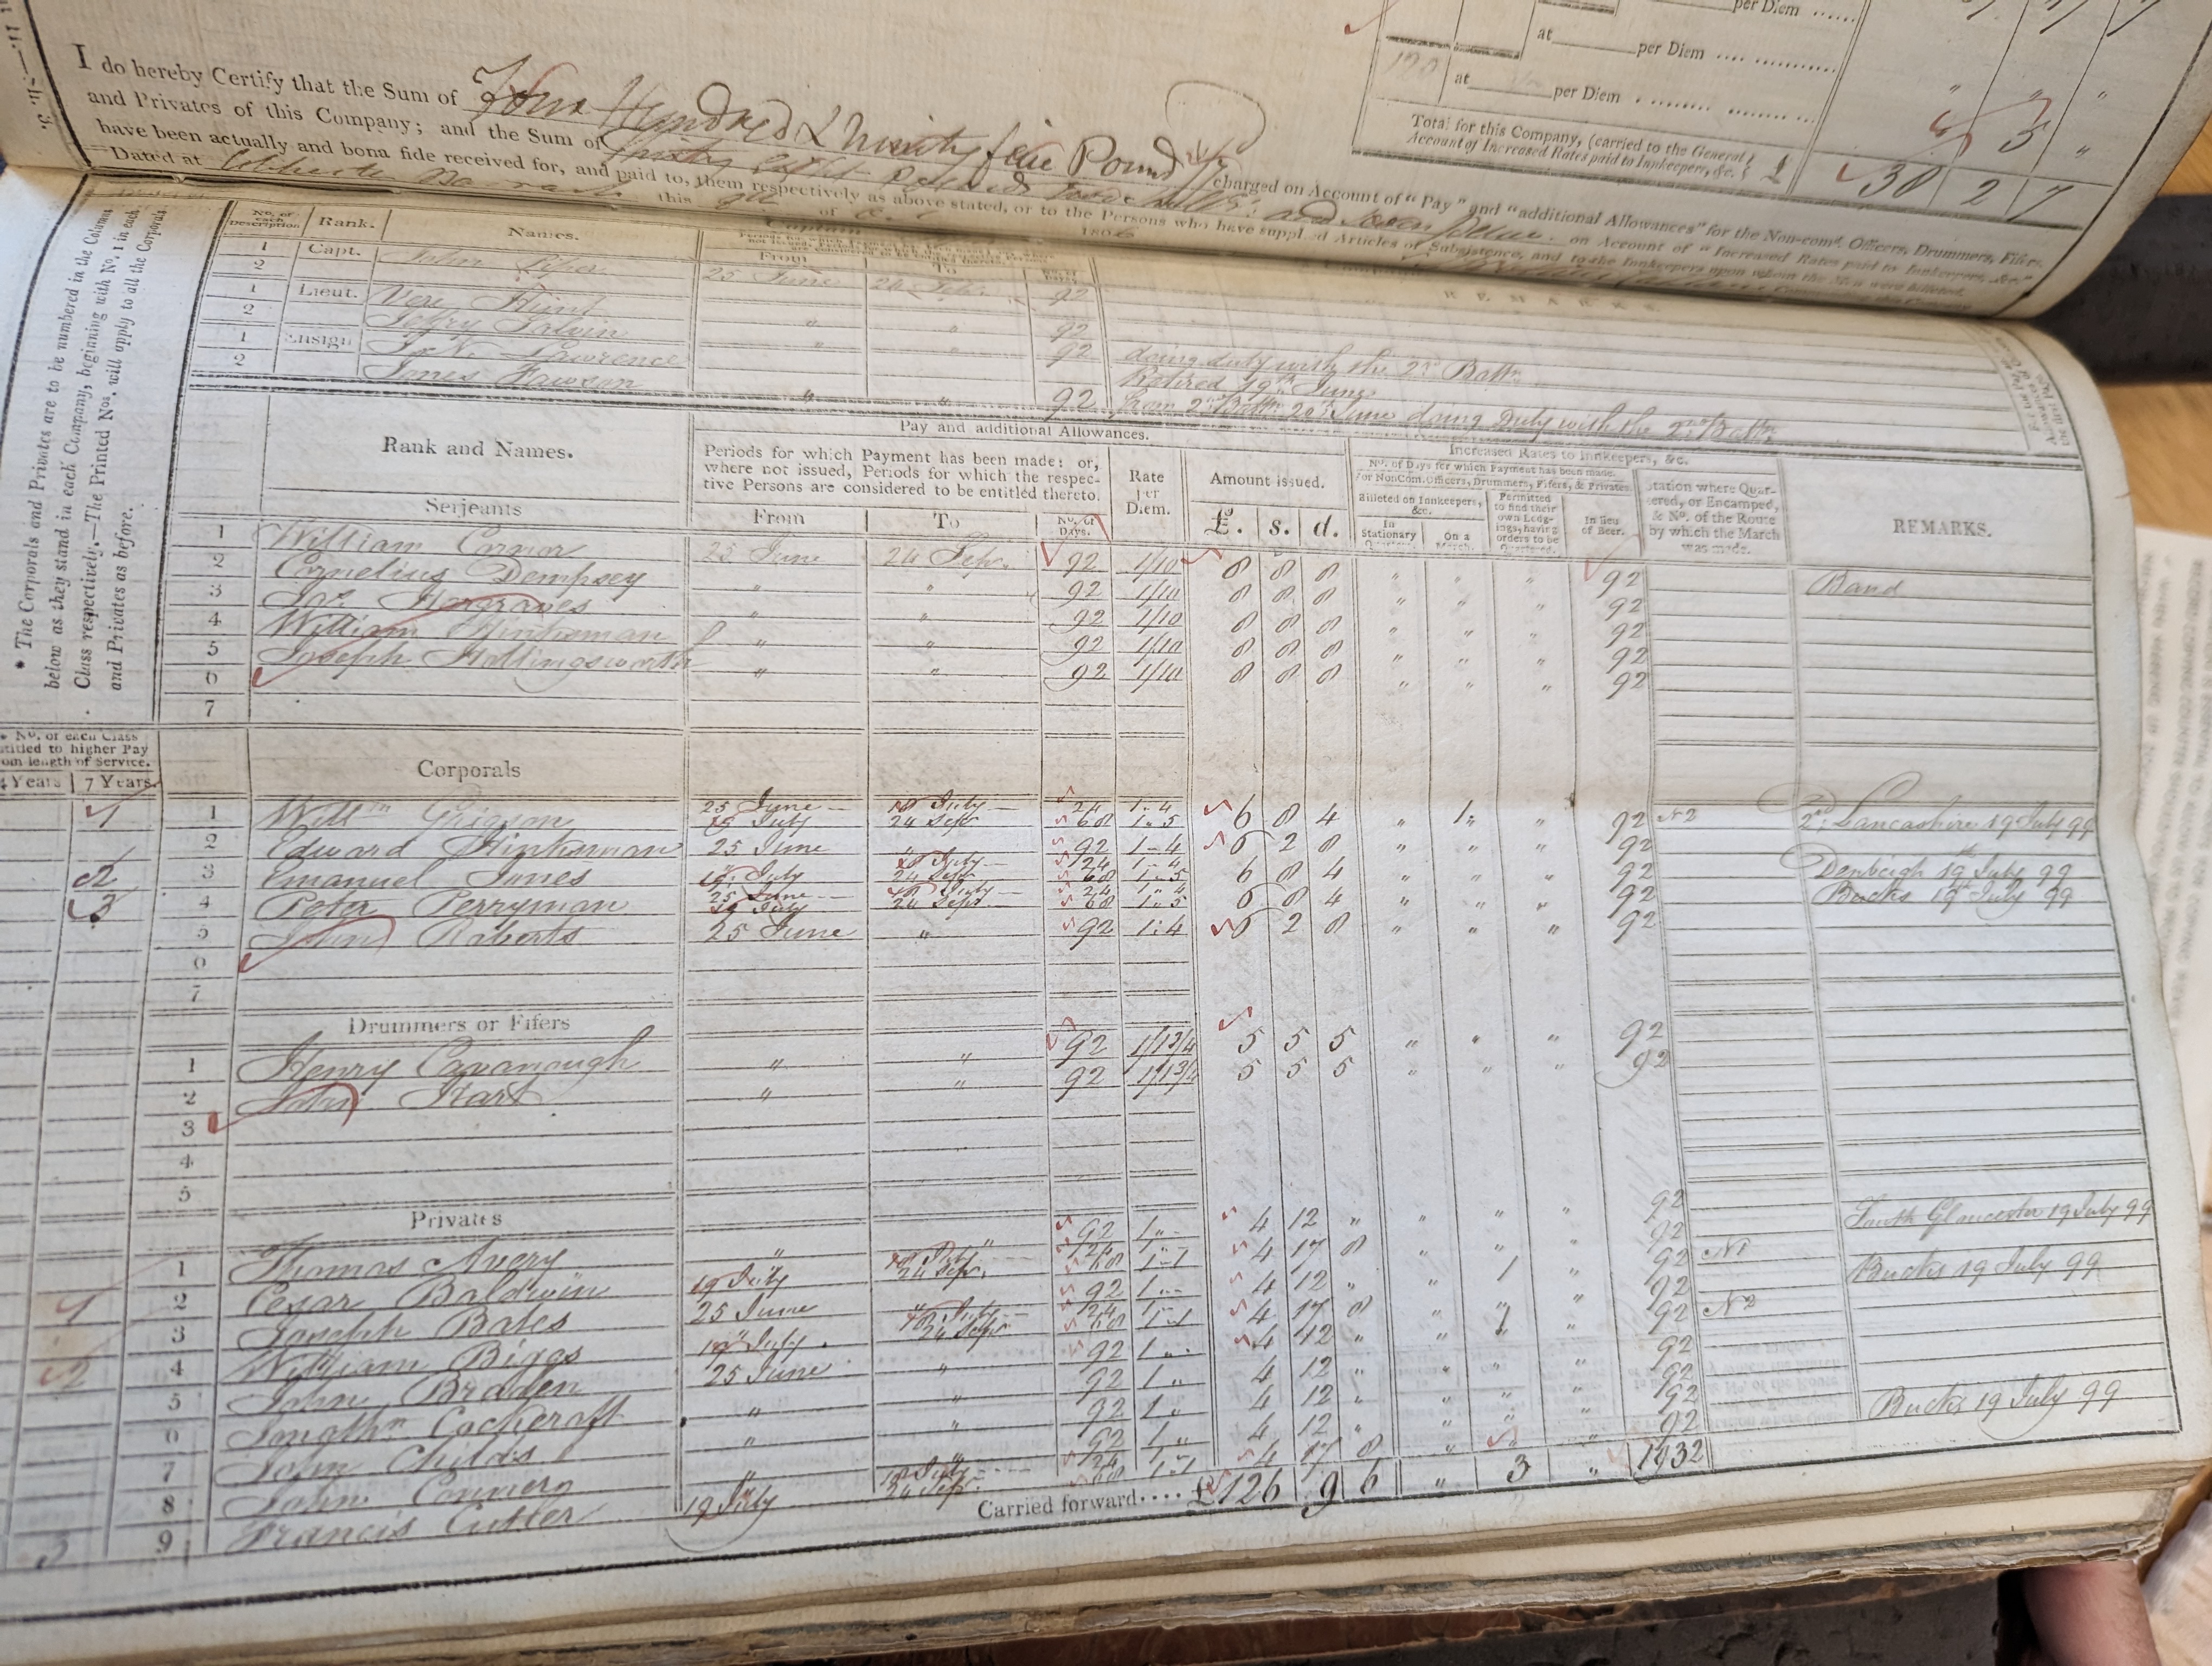 per Diem ......
at per Diem .... ............
120 at per Diem . ........ .........
Total for this Company, (carried to the General
Account of Increased Rates paid to Innkeepers, &c. £ 38 2 7
I do hereby Certify that the Sum of Four Hundred & Ninety five Pound charged on Account of "Pay" and "additional Allowances" for the Non-com. Officers, Drummers, Fifers,
and Privates of this Company; and the Sum of Thirty eight Pounds Two shills. and Seven pence on Account of "Increased Rates paid to Innkeepers, &c."
have been actually and bona fide received for, and paid to, them respectively as above stated, or to the Persons who have supplied Articles of Subsistence, and to the Innkeepers upon whom the Men were billeted.
Dated at this of 1806
* The Corporals and Privates are to be numbered in the Columns
below as they stand in each Company, beginning with No. 1 in each
Class respectively.—The Printed Nos. will apply to all the Corporals
and Privates as before.
No. of each Description Rank. Names. From To REMARKS
1 Capt. John Piper 25 June 24 Sep. 92
2
1 Lieut. Vere Hunt " " 92
2 Jeffry Salvin " " 92 doing duty with the 2nd Battn.
1 Ensign Jn. N. Lawrence Retired 19th June
2 James Fawson " " 92 from 2nd Battn. 20th June doing Duty with the 2nd Battn.
Rank and Names. Pay and additional Allowances. Increased Rates to Innkeepers, &c.
Periods for which Payment has been made: or,
where not issued, Periods for which the respec-
tive Persons are considered to be entitled thereto.
Rate per Diem. Amount issued.
No. of Days for which Payment has been made.
For NonCom. Officers, Drummers, Fifers, & Privates.
Billeted on Innkeepers, &c.
Permitted to find their own Lodg-ings, having orders to be Quartered.
In lieu of Beer.
Station where Quar-
tered, or Encamped,
& No. of the Route
by which the March
was made.
REMARKS.
Serjeants From To No. of Days. £. s. d. In Stationary On a March.
1 William Connor 25 June 24 Sep. 92 1/10 8 8 8 " " " 92 Band
2 Cornelius Dempsey " " 92 1/10 8 8 8 " " " 92
3 Jas. Hargraves " " 92 1/10 8 8 8 " " " 92
4 William Hinksman " " 92 1/10 8 8 8 " " " 92
5 Joseph Hollingsworth " " 92 1/10 8 8 8 " " " 92
6
7
No. of each Class
entitled to higher Pay
from length of Service.
4 Years 7 Years.
Corporals
1 1 Willm Grigson 25 June 18 July 24 1"4
19 July 24 Sepr 68 1"5 6 8 4 " 1" " 92 No 2 2nd Lancashire 19 July 99
2 Edward Hinksman 25 June " 92 1-4 6 2 8 " " " 92
2 3 Emanuel Jones " 18 July 24 1"4
19 July 24 Sepr 68 1"5 6 8 4 " " " 92 Denbigh 19th July 99
3 4 Peter Perryman 25 June 18 July 24 1"4
19 July 24 Sepr 68 1"5 6 8 4 " " " 92 Bucks 19th July 99
5 John Roberts 25 June " 92 1:4 6 2 8 " " " 92
6
7
Drummers or Fifers
1 Henry Cavanaugh " " 92 1/1 3/4 5 5 5 " " " 92
2 John Hart " " 92 1/1 3/4 5 5 5 " " " 92
3
4
5
Privates
1 Thomas Avery " " 92 1"- 4 12 " " " " 92
1 2 Cezar Baldwin " 18 July 24 1"
19 July 24 Sepr. 68 1-1 4 17 8 " " " 92 South Gloucester 19 July 99
3 Joseph Bates 25 June " 92 1"- 4 12 " " 1 " 92 No 1
2 4 William Biggs " 18 July 24 1"
19 July 24 Sepr 68 1-1 4 17 8 " " " 92 Bucks 19 July 99
5 John Braden 25 June " 92 1" 4 12 " " 1 " 92 No 2
6 Cockcraft " " 92 1" 4 12 " " " " 92
7 John Childs " " 92 1" 4 12 " " " " 92
8 John Connern " " 92 1" 4 12 " " " " 92
3 9 Francis Cutler " 18 July 24 1"
19 July 24 Sepr. 68 1"1 4 17 8 " " " 92 Bucks 19 July 99
Carried forward.... £126 9 6 " 3 " 1932